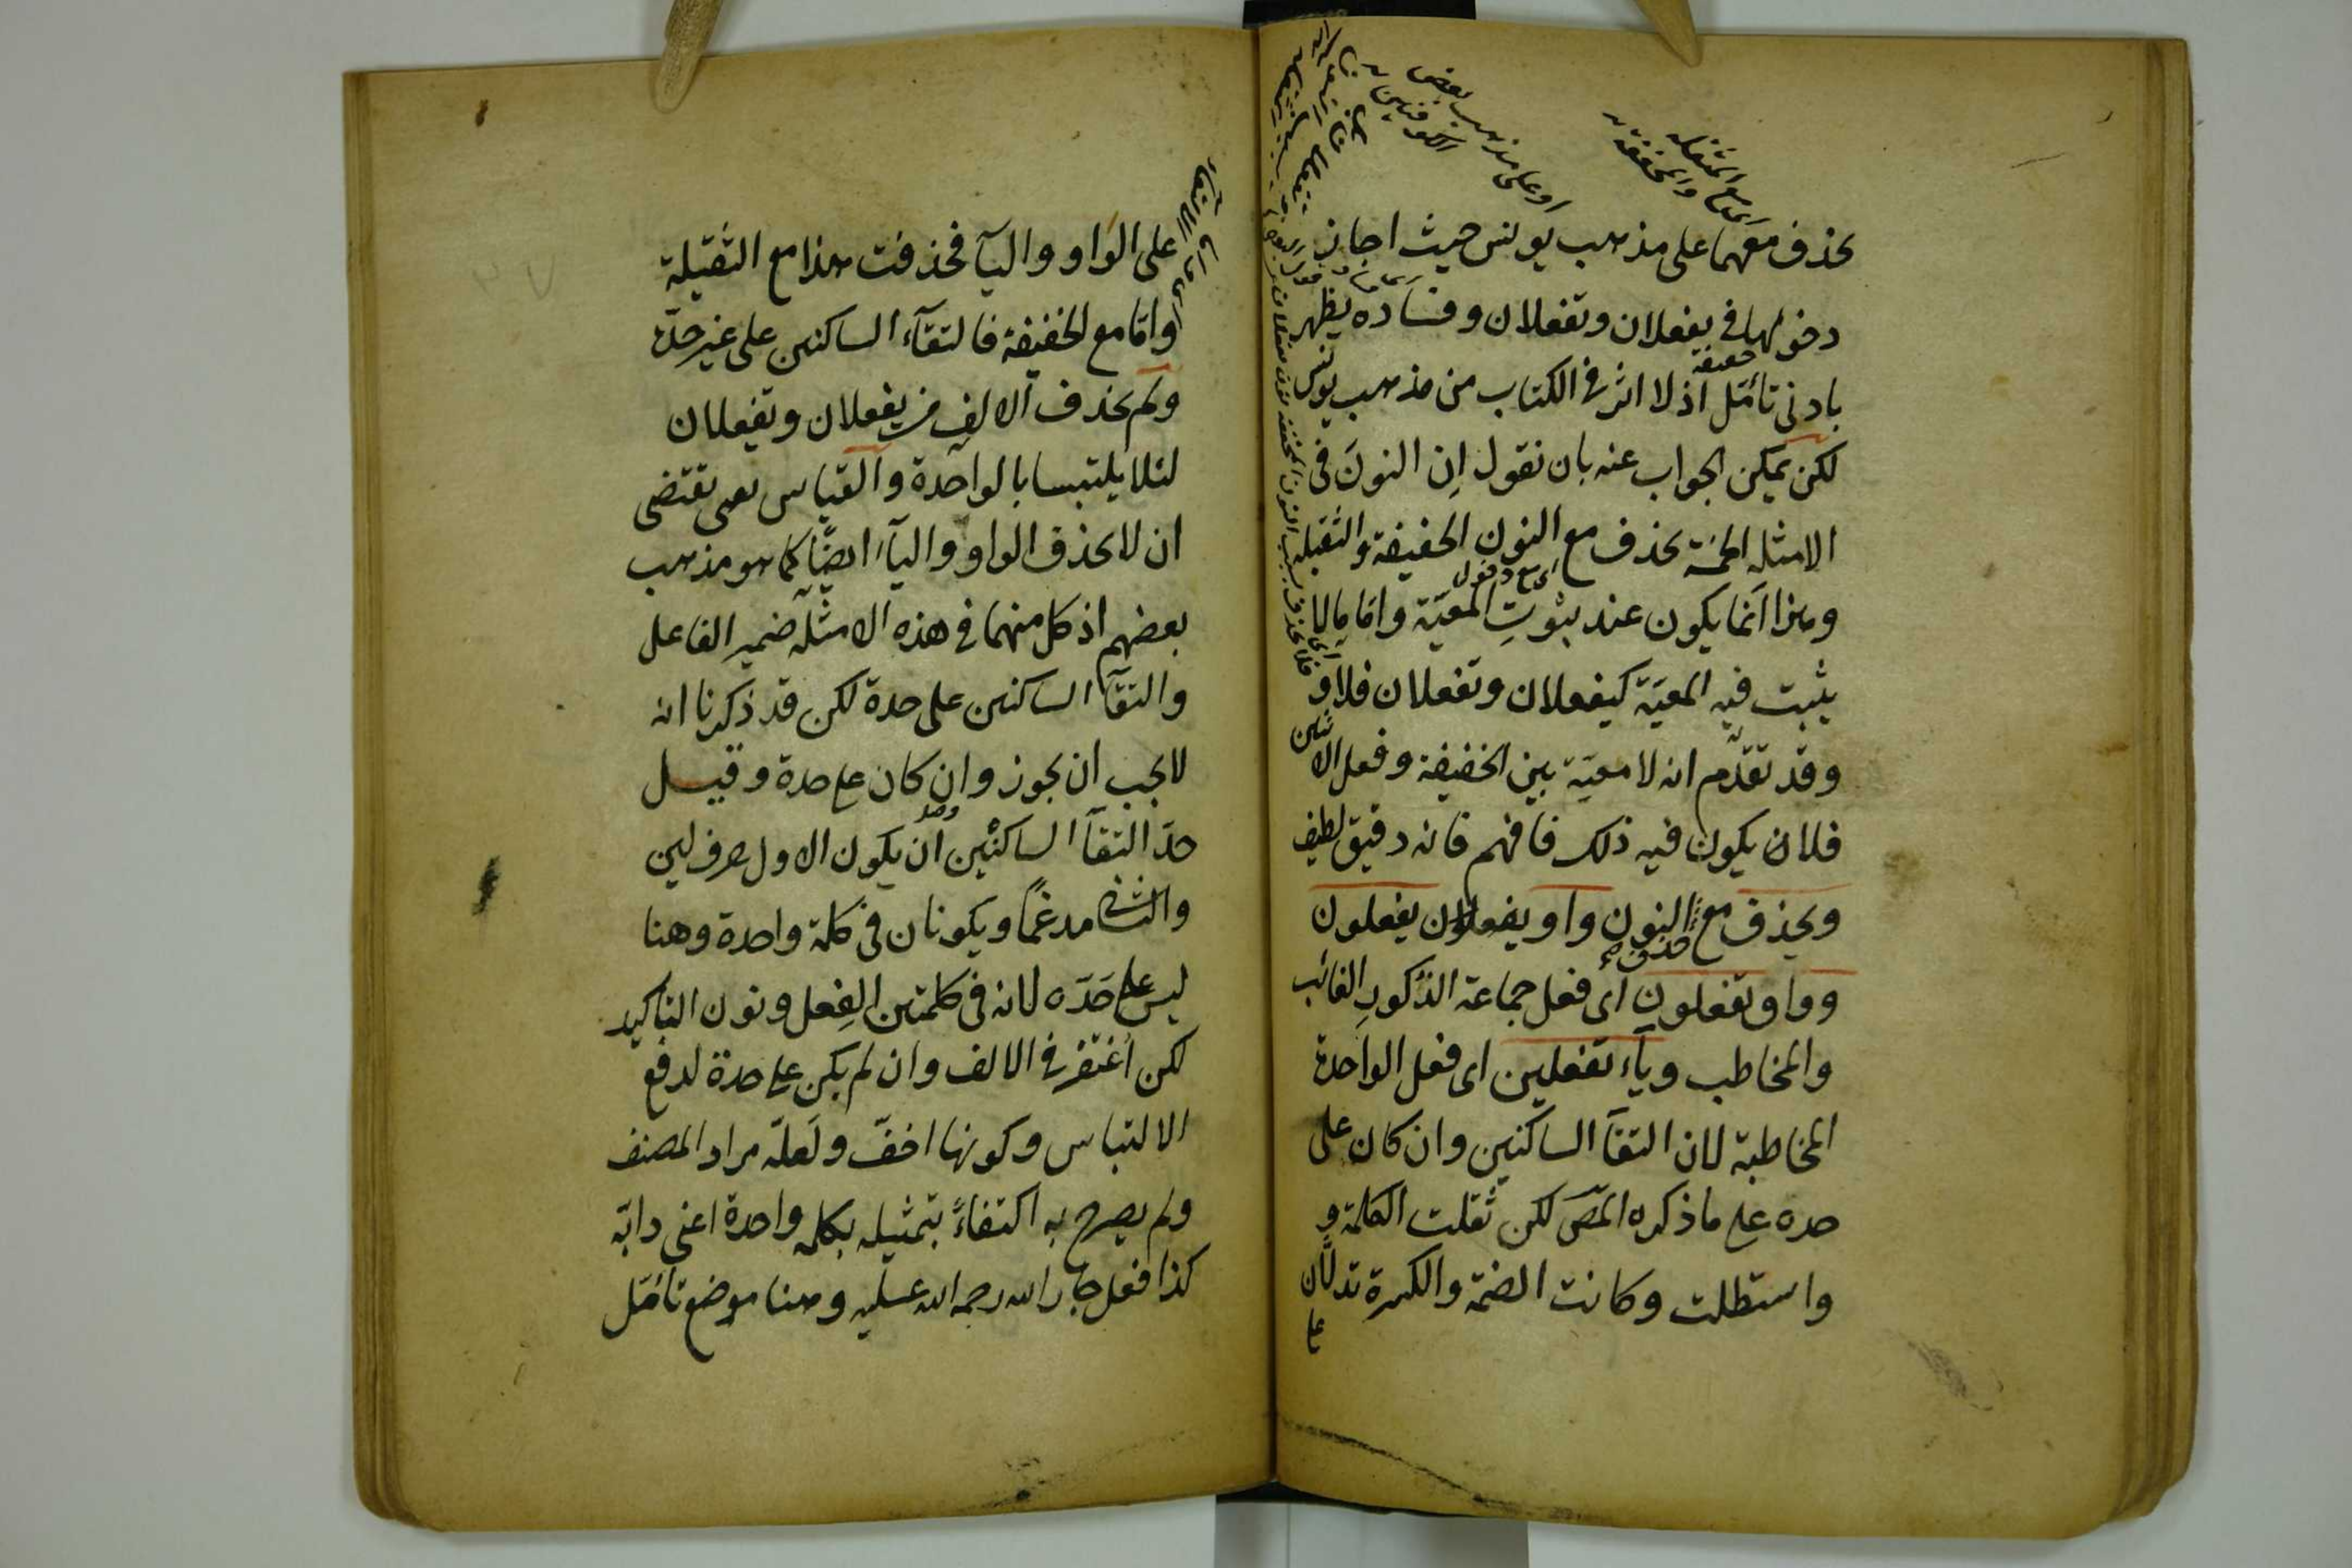 يحذف معهما على مذهب يونس حيث اجاز
دخولها في يفعلان وتفعلان وفساده يظهر
بادنى تأمل اذ لا اثر في الكتاب من مذهب يونس
لكن يمكن الجواب عنه بان نقول إن النون في
الامثله الخمسة يحذف مع النون الخفيفة والثقيله
وهذا انما يكون عند ثبوت المعيّة واما ما لا
يثبت فيه المعيّة كيفعلان وتفعلان فلا و
وقد تقدّم انه لا معيّة بين الخفيفة وفعل الاثنين
فلا ان يكون فيه ذلك فافهم فانه دقيق لطيف
ويحذف مع النون واو يفعلون
وواو تفعلون اى فعل جماعة الذكور الغائب
والمخاطب وياء تفعلين اى فعل الواحدة
المخاطبة لان التقآ الساكنين وان كان على
حده على ما ذكره المص لكن ثقلت الكلمة و
واستطلت وكانت الضمة والكسرة تدلان
على
او على مذهب بعض
الكوفيين
اى مع المثقلة
والمخففة
حقيقة
اى مع دخول
على الواو واليآ فحذفت هذا مع الثقيلة
وامّا مع الخفيفة فالتقآء الساكنين على غير حدّه
ولم يحذف الالف من يفعلان وتفعلان
لئلا يلتبسا بالواحدة والقياس يقتضى
ان لا يحذف الواو واليآء ايضًا كما هو مذهب
بعضهم اذ كل منهما في هذه الامثلة ضمير الفاعل
والتقآ الساكنين على حدة لكن قد ذكرنا انه
لا يجب ان يجوز وان كان على حدة وقيل
حدّ التقآ الساكنين ان يكون الاول حرف لين
والثانى مدغمًا ويكونان في كلمة واحدة وهنا
ليس على حَدّه لانه في كلمتين الفِعل ونون التاكيد
لكن اُغتفر في الالف وان لم يكن على حدة لدفع
الالتباس وكونها اخفّ ولَعلّه مراد المصنف
ولم يصرح به اكتفاءً بتمثيله بكلمه واحدة اعنى دابّة
كذا فعل جار الله رحمه الله عليه وهنا موضع تأمّل